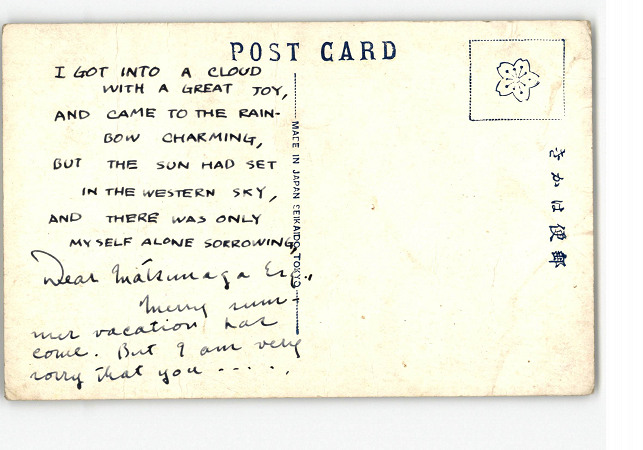 POST CARD
I GOT INTO A CLOUD
WITH A GREAT JOY,
AND CAME TO THE RAIN-
BOW CHARMING,
BUT THE SUN HAD SET
IN THE WESTERN SKY,
AND THERE WAS ONLY
MYSELF ALONE SORROWING.
Dear Matsunaga Esq.
Merry sum-
mer vacation has
come. But I am very
sorry that you - - - - .
MADE IN JAPAN SEIKAIDO, TOKYO
郵便はがき